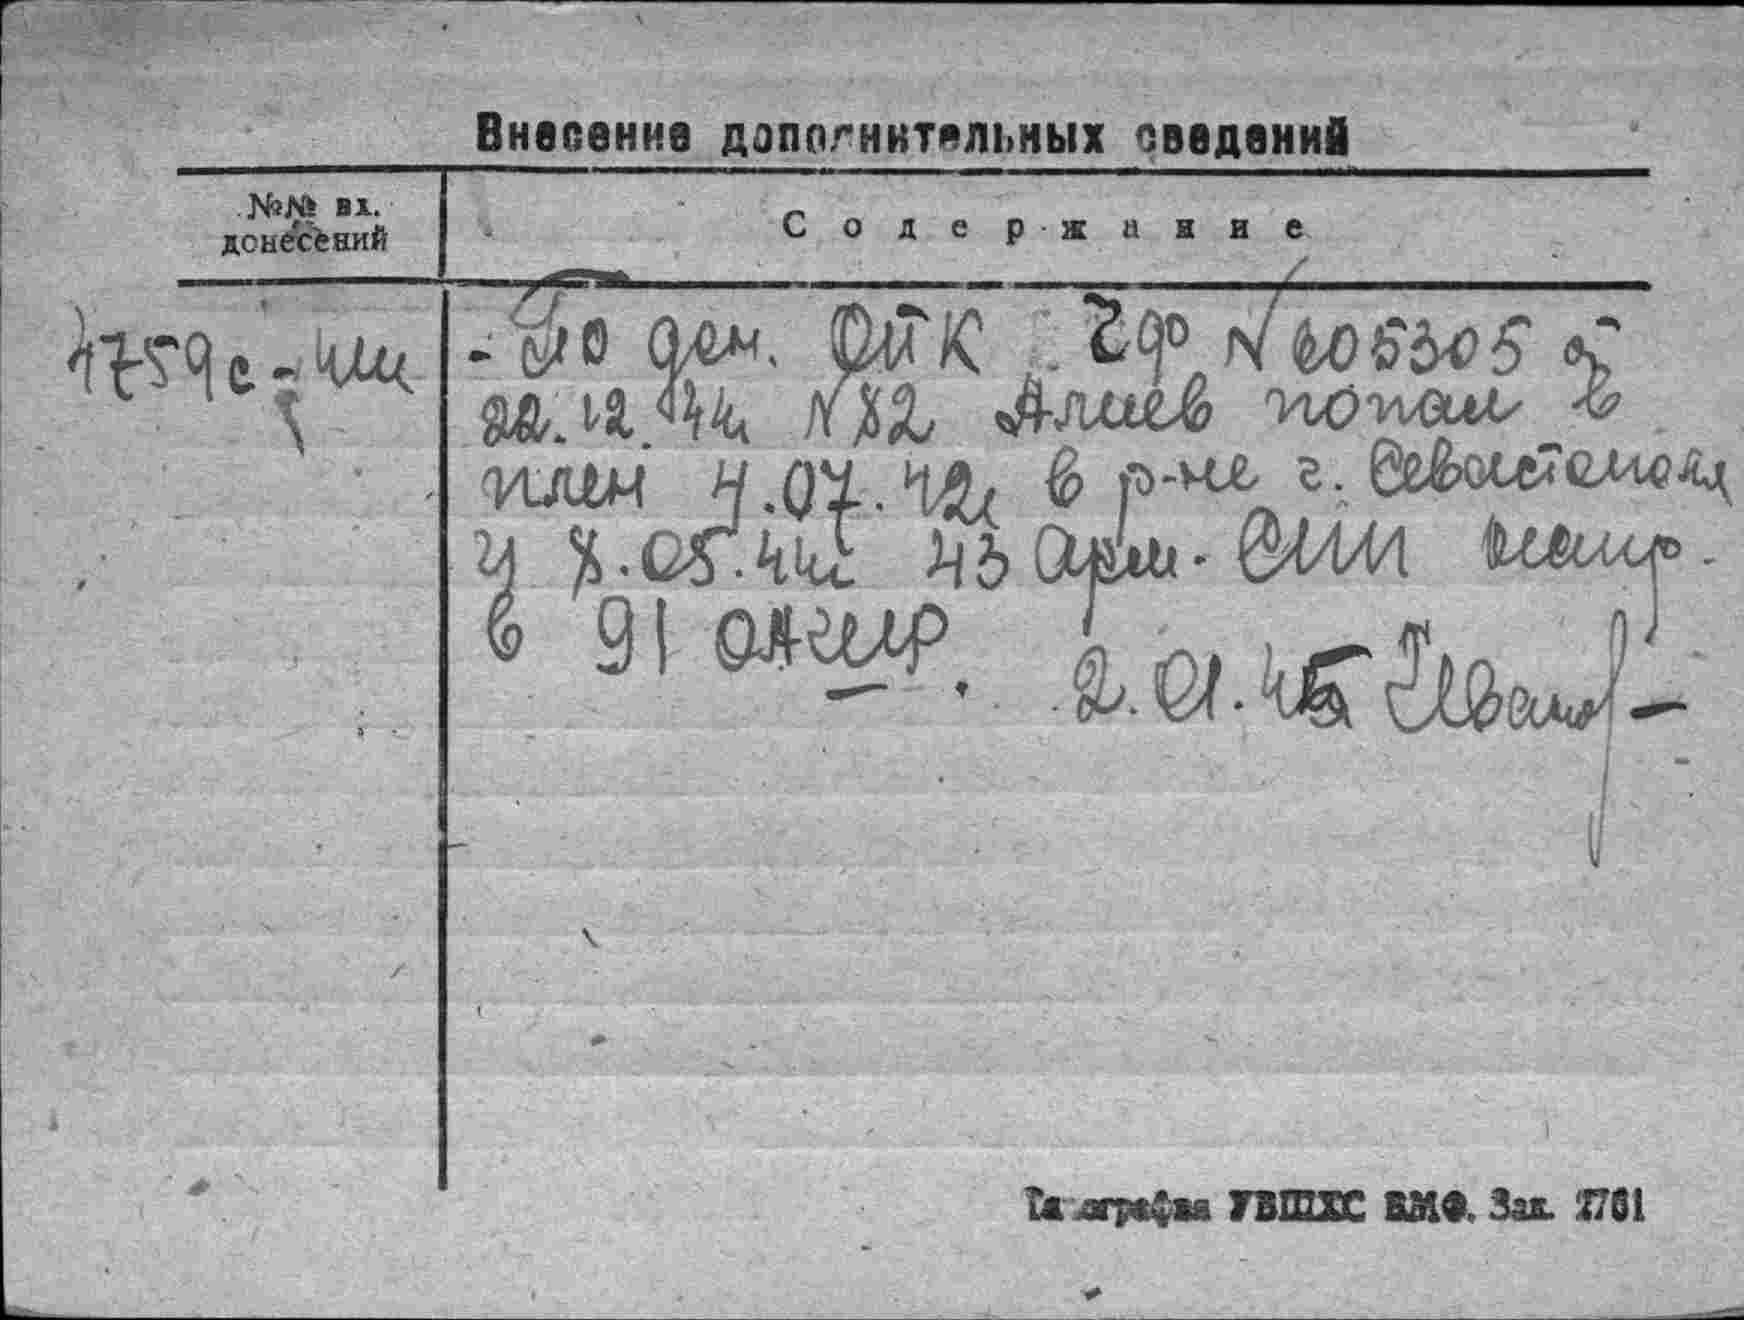 Внесение дополнительных сведений
№№ вх.
донесений
Содержание
4759с-44г
- По дон. ОПК ЧФ №005305 от
22.12.44г №82 Алиев попал в
плен 4.07.42г в р-не г. Севастополя
и 8.05.44г 43 Арм. СПП напр.
в 91 
2.01.45 Иванов
Типография УВПХС ВМФ. Зак. 2761